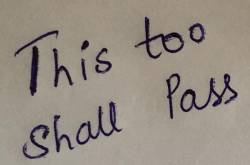 This too
shall Pass